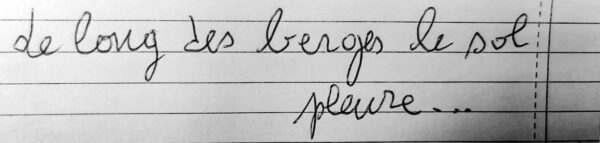 de long des berges le sol
pleure...